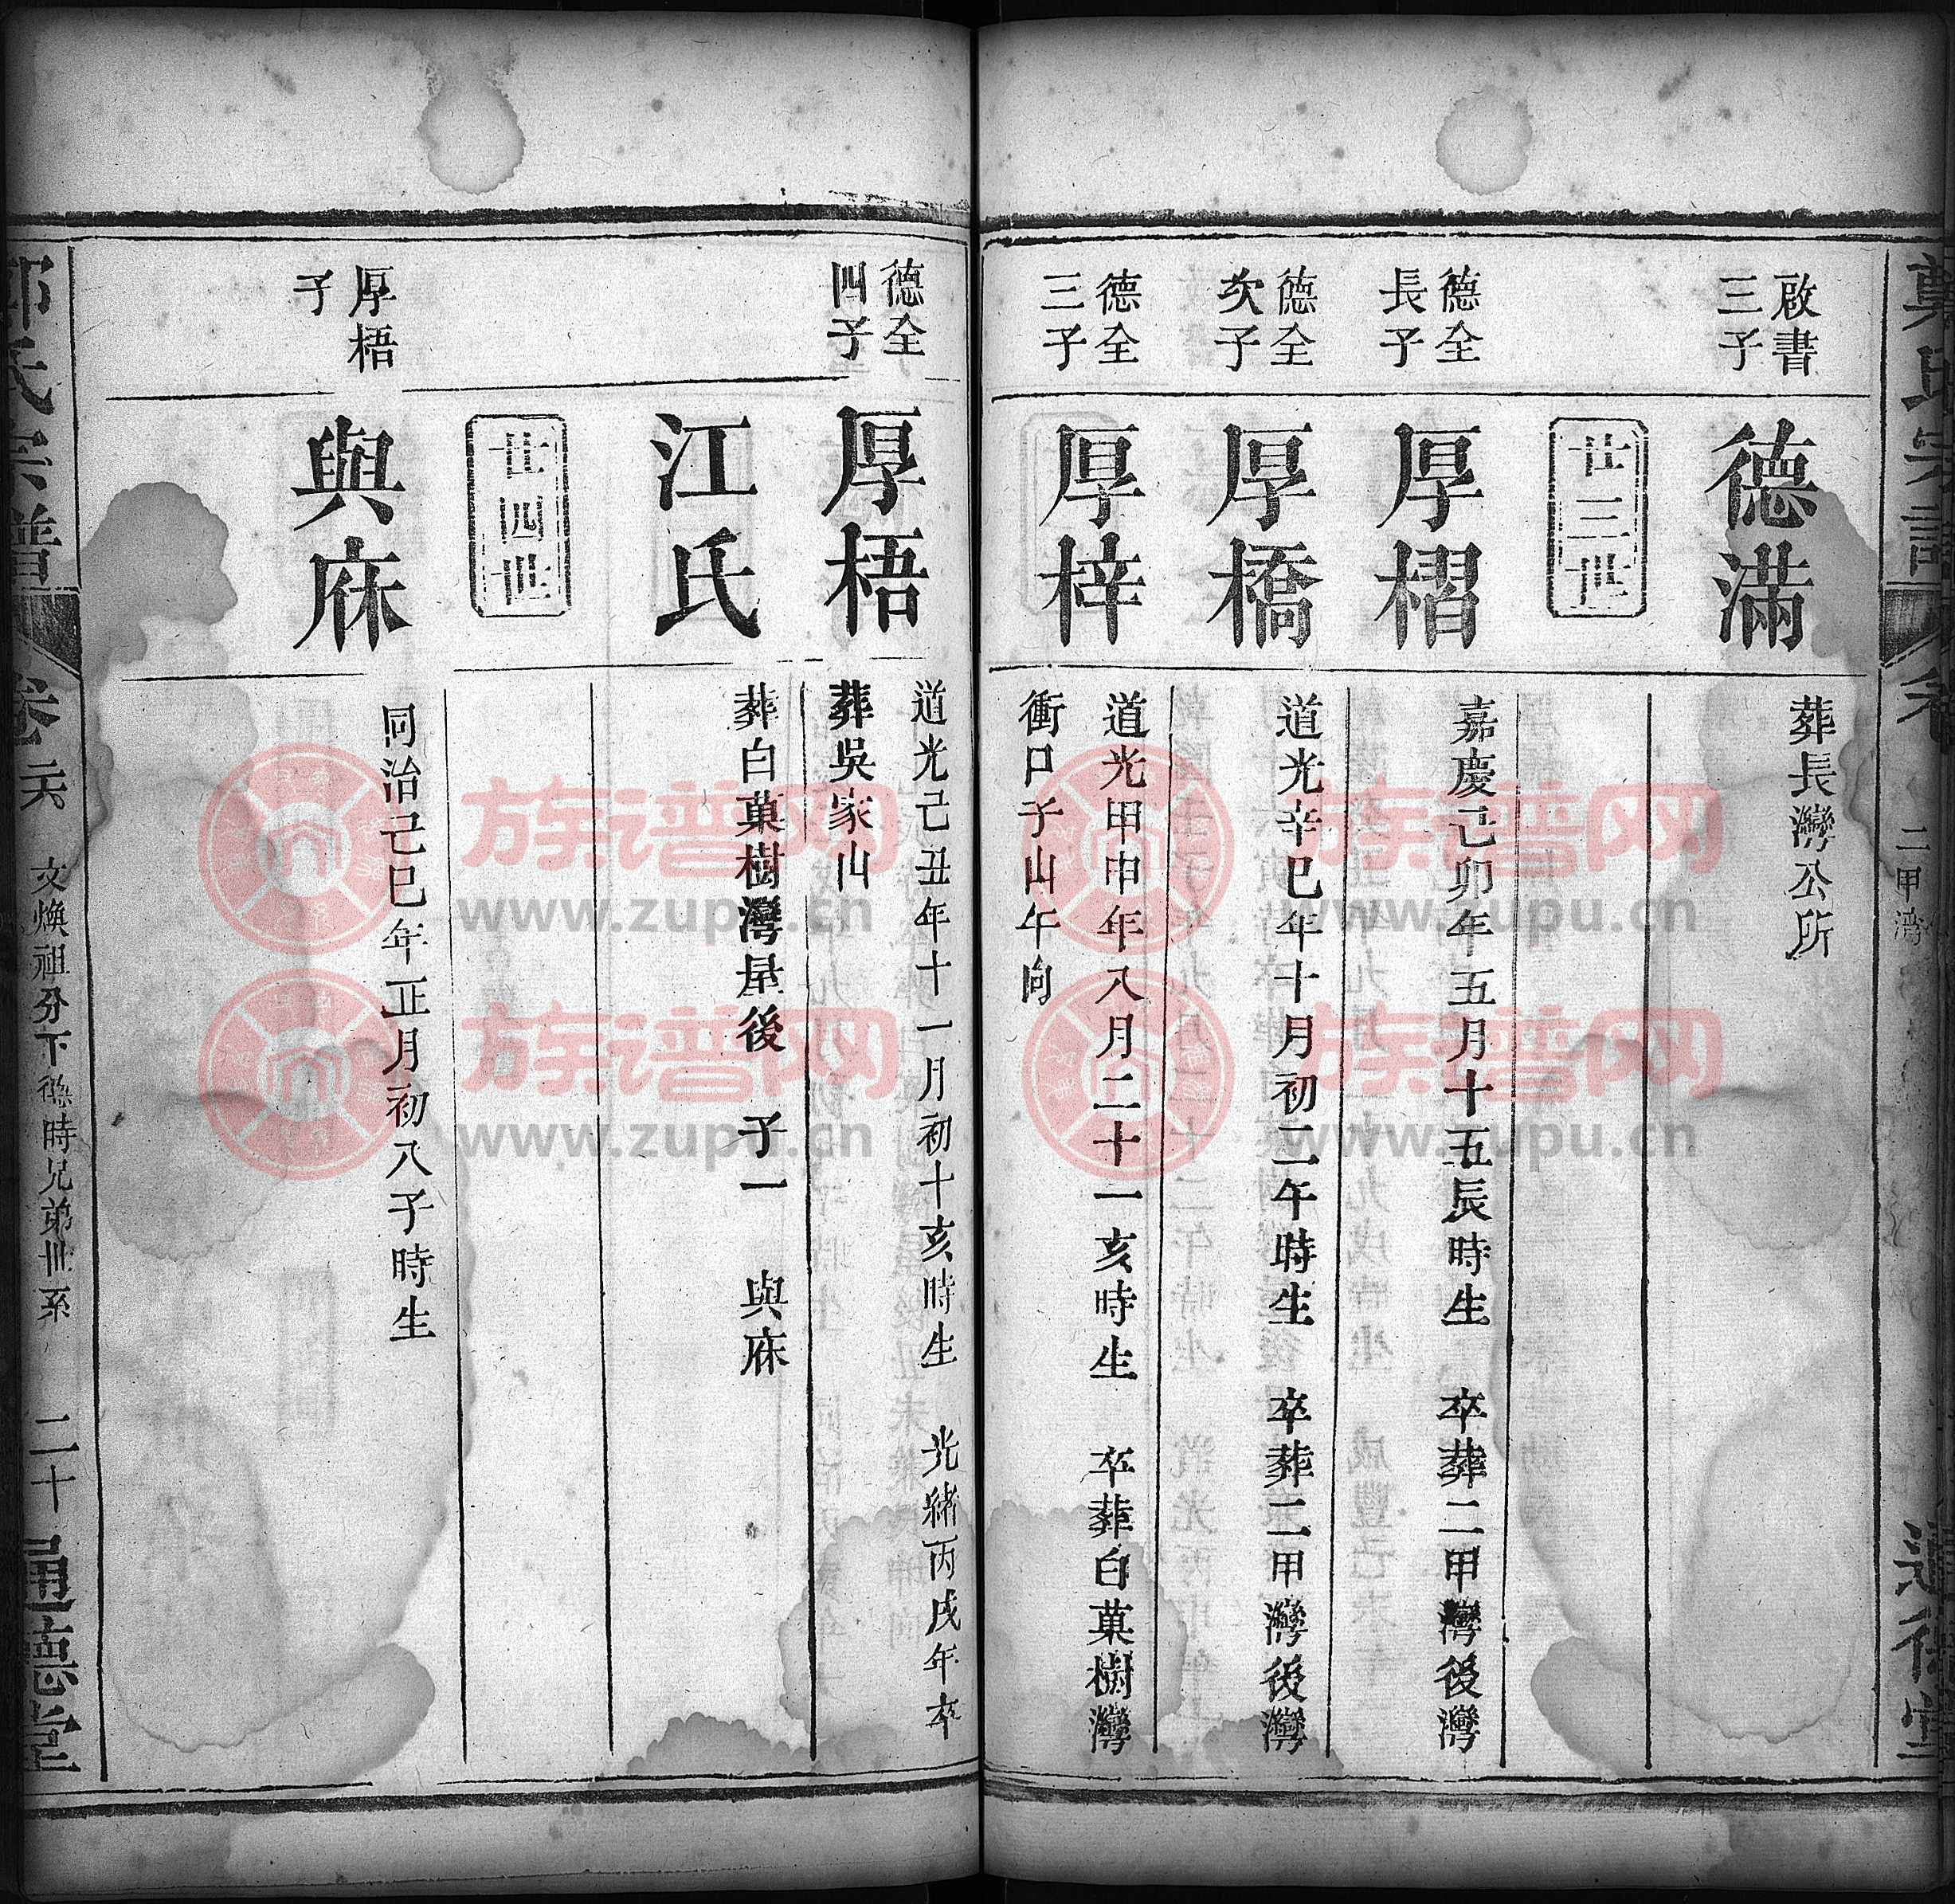 啟書
三子
德滿
葬長灣公所
廿三世
德全
長子
厚槢
嘉慶己卯年五月十五辰時生 卒葬二甲灣後灣
德全
次子
厚橋
道光辛巳年十月初二午時生 卒葬二甲灣後灣
德全
三子
厚梓
道光甲申年八月二十一亥時生 卒葬白菓樹灣
衝口子山午向
德全
四子
厚梧
道光己丑年十一月初十亥時生 光緒丙戌年卒
葬吳家山
江氏
葬白菓樹灣屋後 子一 與庥
廿四世
厚梧
子
與庥
同治己巳年正月初八子時生
氏宗譜
卷六
文煥祖分下 時兄弟世系
二十
通德堂
二甲湾
族谱网
www.zupu.cn
族谱网
www.zupu.cn
族谱网
www.zupu.cn
族谱网
www.zupu.cn